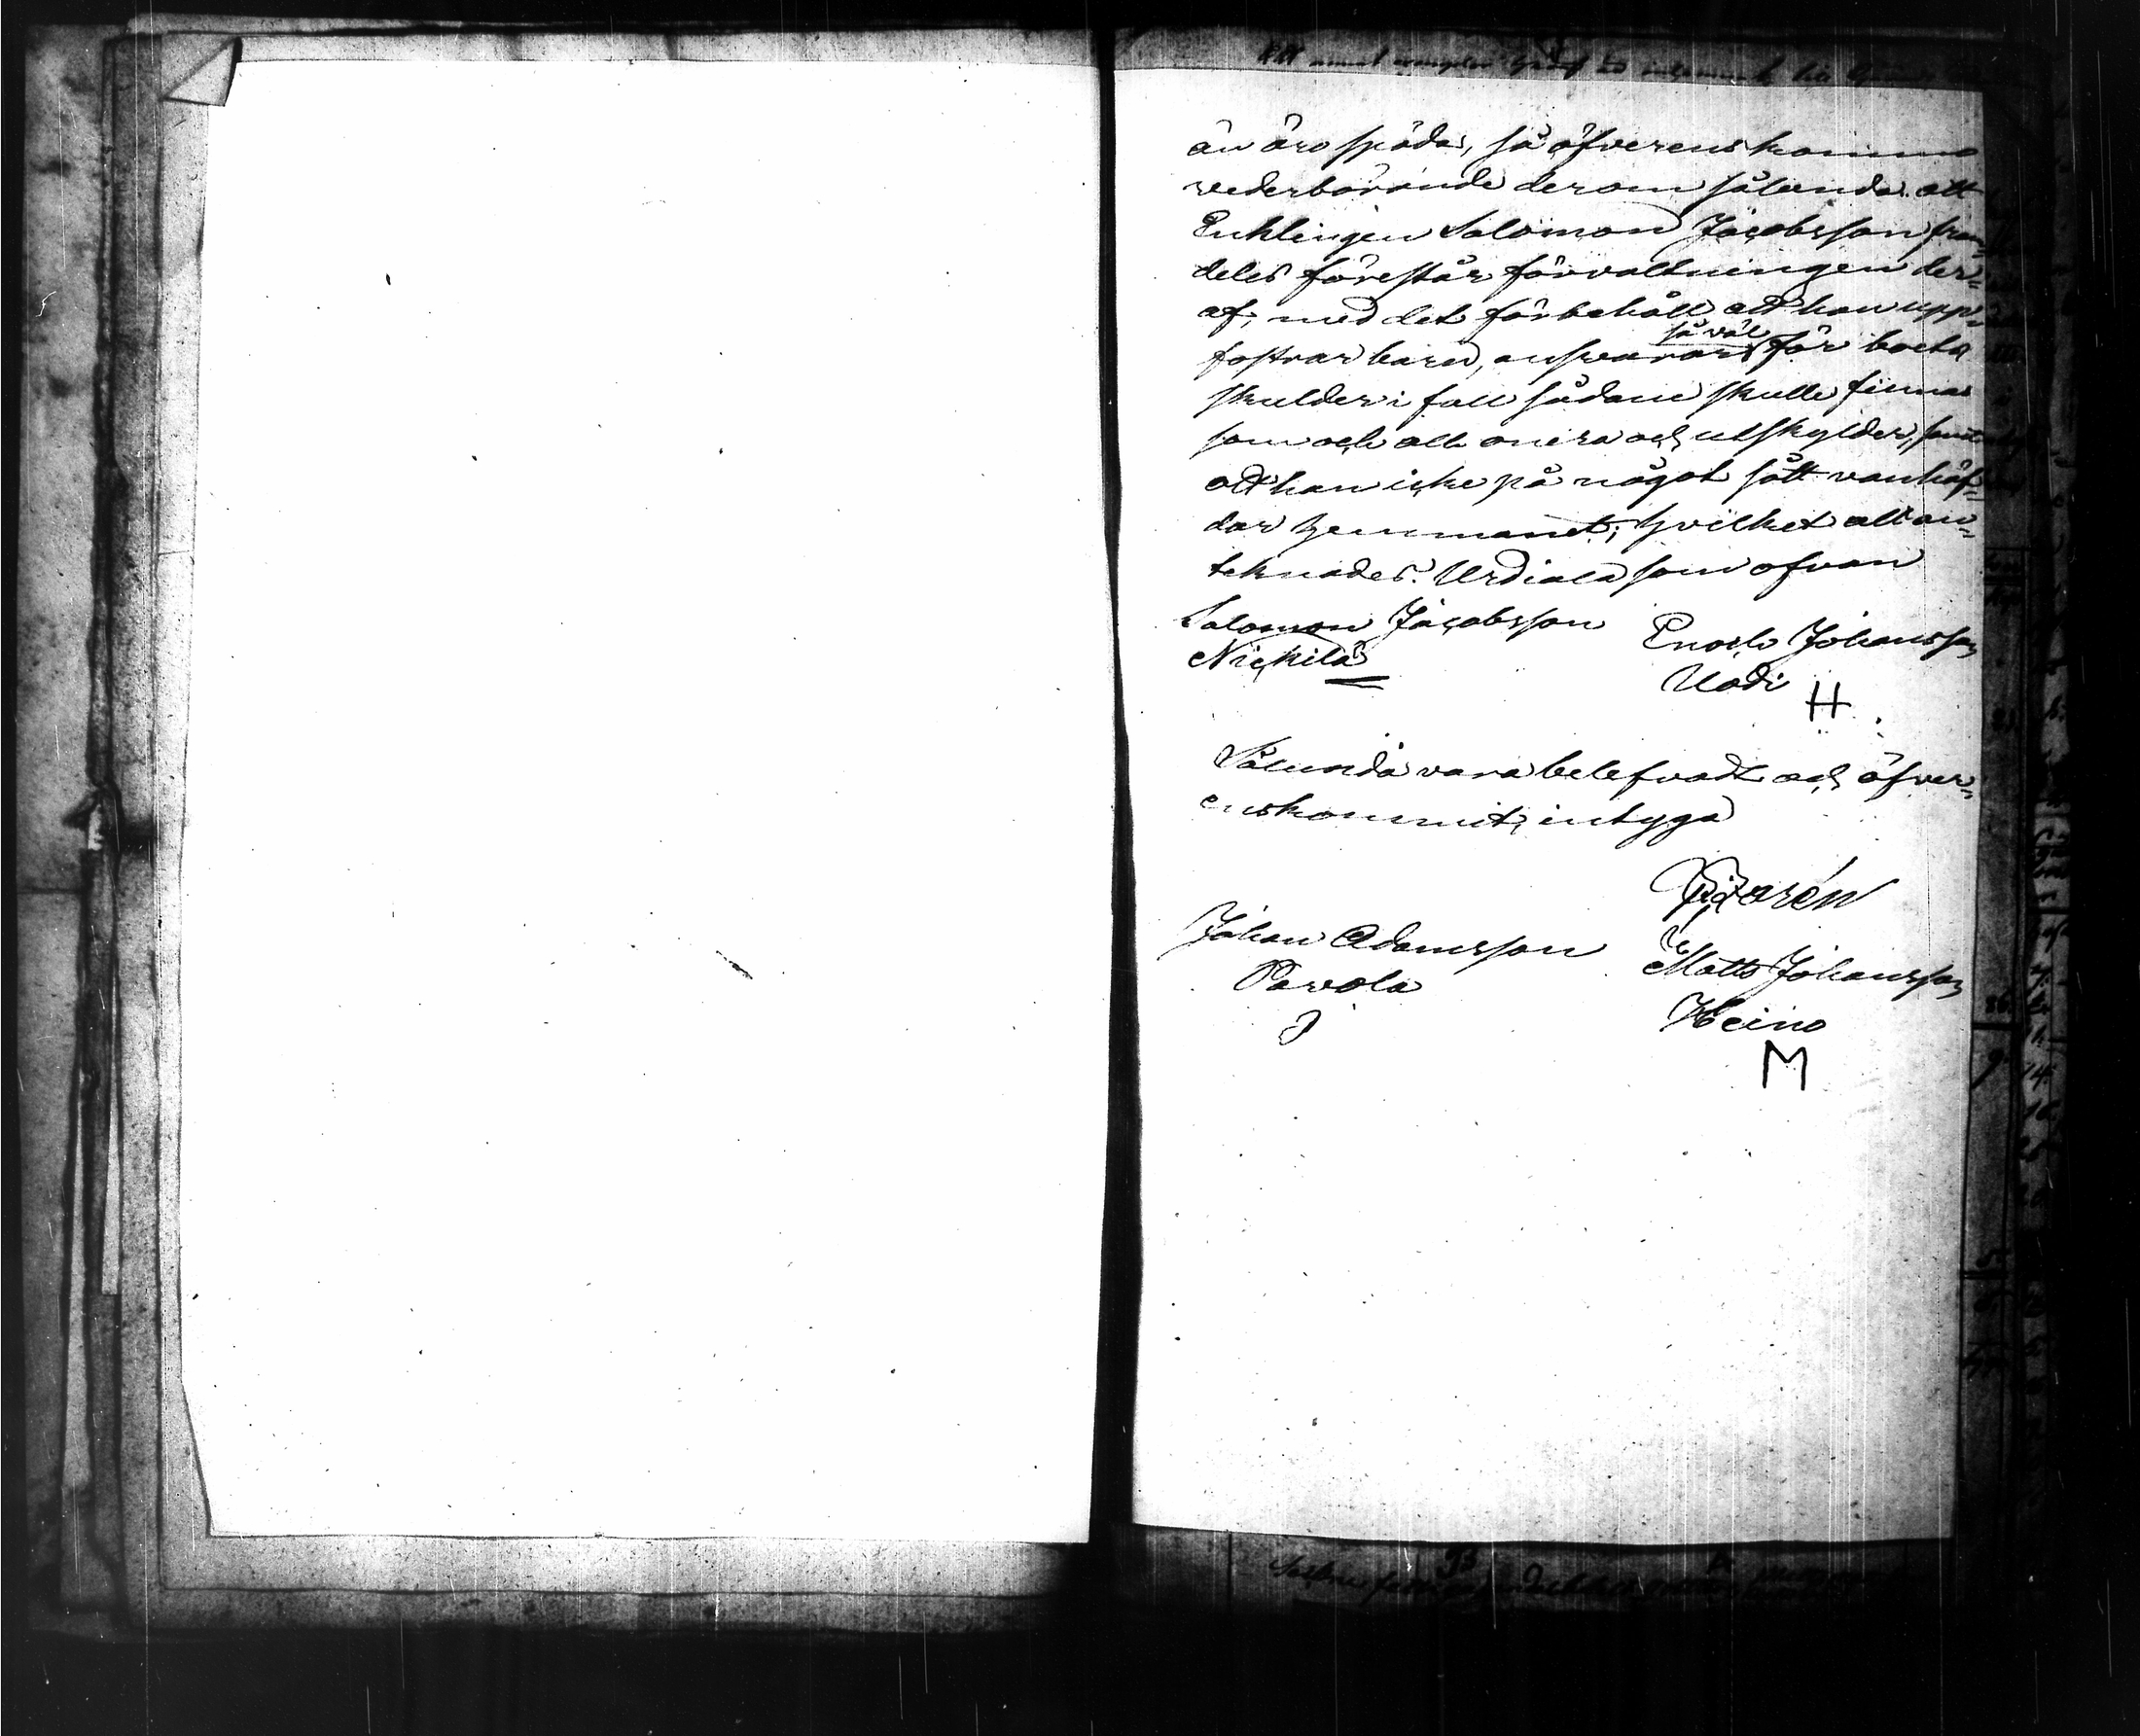 än äro späda, så öfverenskommo
vederbörande derom sålunda att
Enklingen Salomon Jacobsson fram-
deles förestår förvaltningen der-
af, med det förbehåll att han upp-
fostrar barn, ansvarar så väl för boets
skulder i fall sådane skulle finnas
som och alla onera och utskylder, samt
att han icke på något sätt vanhäf-
dar hemmanet; hvilket allt an-
teknades. Urdiala som ofvan
Salomon Jacobsson
Nickilä
Enoch Johansson
Uodi
H
Sålunda vara belefvadt och öfver-
enskommit, intyga
Johan Adamsson
Pavola
J
Matts Johansson
Heino
M